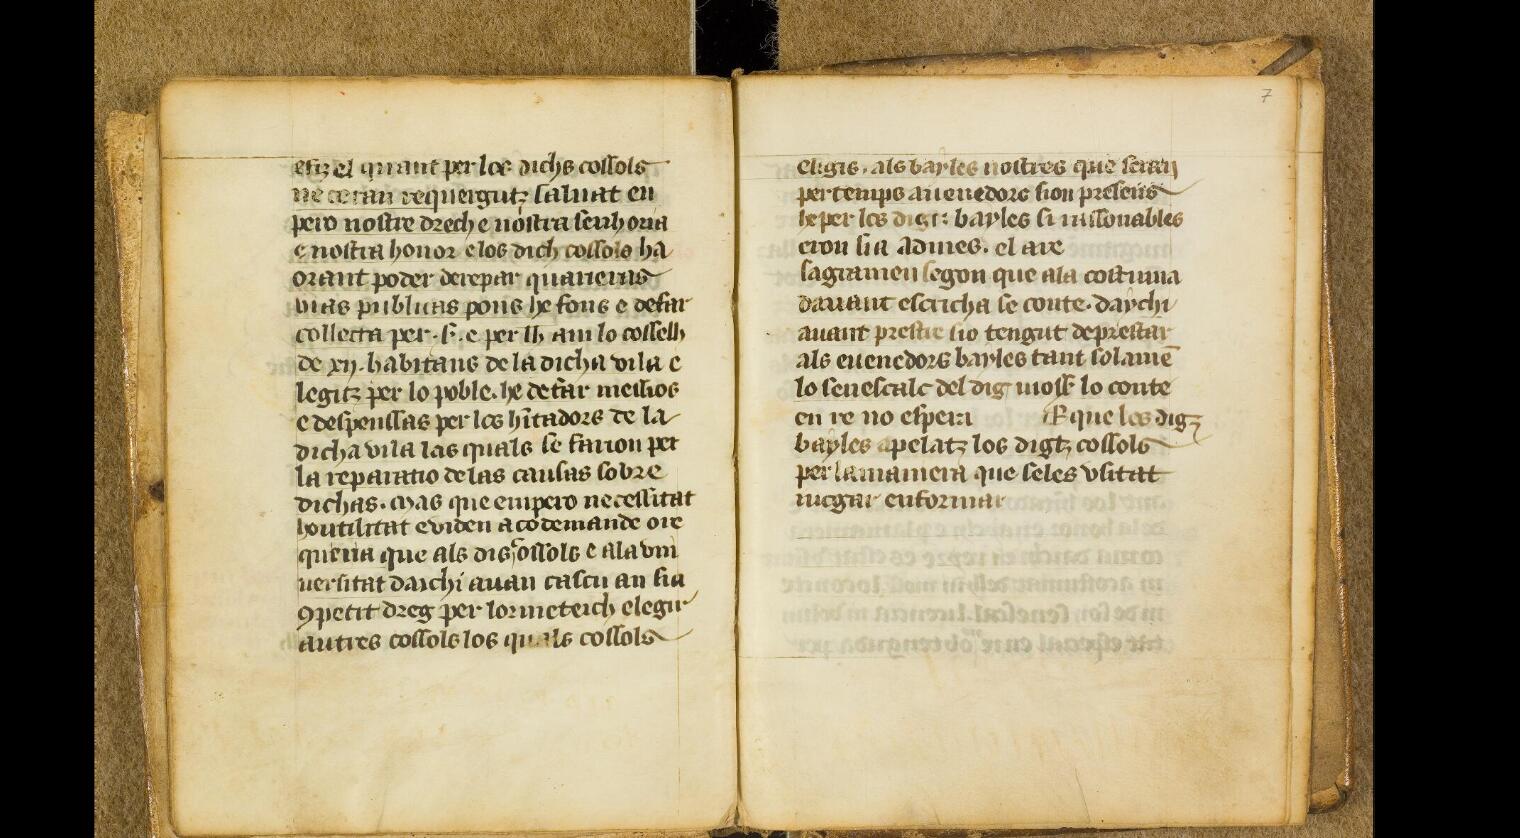 el quant per los dichs cossols
requergutz saluat en
pero nostre drech e nostra senhoria
e nostra honor e los dich cossols ha
orant poder derepar quarieiras
uias publicas pons he fons e defar
collecta per .s. e per lh am lo cossellh
de xij. habitans de la dicha vila e
legitz per lo poble. he defar messios
e despenssas per los hitadors de la
dicha vila las quals se farion per
la reparatio de las causas sobre
dichas. Mas que empero necessitat
ho utilitat euiden acodemande ore
que als digs cossols e ala vni
uersitat daichi auan cascu an sia
9petit dreg per lor meteich elegir
autres cossols los quals cossols
7
eligis. als bayles nostres que seran
per temps auenedors sion presens
he per los digz bayles si rassonables
eron sia admes. el
sagramen segon que ala costuma
dauant escricha se conte. daychi
auant preste sio tengut deprestar
als euenedors bayles tant solamē
lo senescalc del dig moss lo conte
en re no esperat E que los digz
bayles apelatz los digz cossols
per la maniera que seles vsitat
iucgar enformar